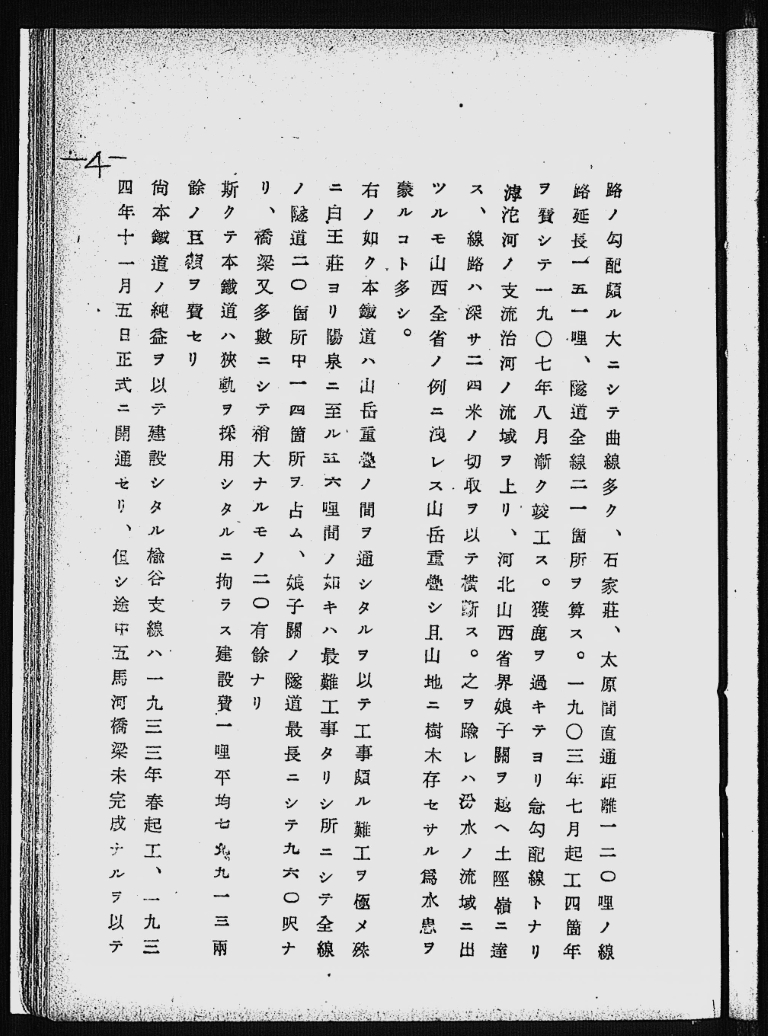 路ノ勾配頗ル大ニシテ曲線多ク、石家莊、太原間直通距離一二〇哩ノ線
路延長一五一哩、隧道全線二一箇所ヲ算ス。一九〇三年七月起工四箇年
ヲ費シテ一九〇七年八月漸ク竣工ス。獲鹿ヲ過キテヨリ急勾配線トナリ
滹沱河ノ支流治河ノ流域ヲ上リ、河北山西省界娘子關ヲ越ヘ土陘嶺ニ達
ス、線路ハ深サ二四米ノ切取ヲ以テ橫斷ス。之ヲ踰レハ汾水ノ流域ニ出
ツルモ山西全省ノ例ニ洩レス山岳重疊シ且山地ニ樹木存セサル爲水患ヲ
蒙ルコト多シ。
右ノ如ク本鐵道ハ山岳重疊ノ間ヲ通シタルヲ以テ工事頗ル難工ヲ極メ殊
ニ白王莊ヨリ陽泉ニ至ル五六哩間ノ如キハ最難工事タリシ所ニシテ全線
ノ隧道二〇箇所中一四箇所ヲ占ム、娘子關ノ隧道最長ニシテ九六〇呎ナ
リ、橋梁又多數ニシテ稍大ナルモノ二〇有餘ナリ
斯クテ本鐵道ハ狹軌ヲ採用シタルニ拘ラス建設費一哩平均七九一三兩
餘ノ巨額ヲ費セリ
尙本鐵道ノ純益ヲ以テ建設シタル楡谷支線ハ一九三三年春起工、一九三
四年十一月五日正式ニ開通セリ、但シ途中五馬河橋梁未完成ナルヲ以テ
-4-